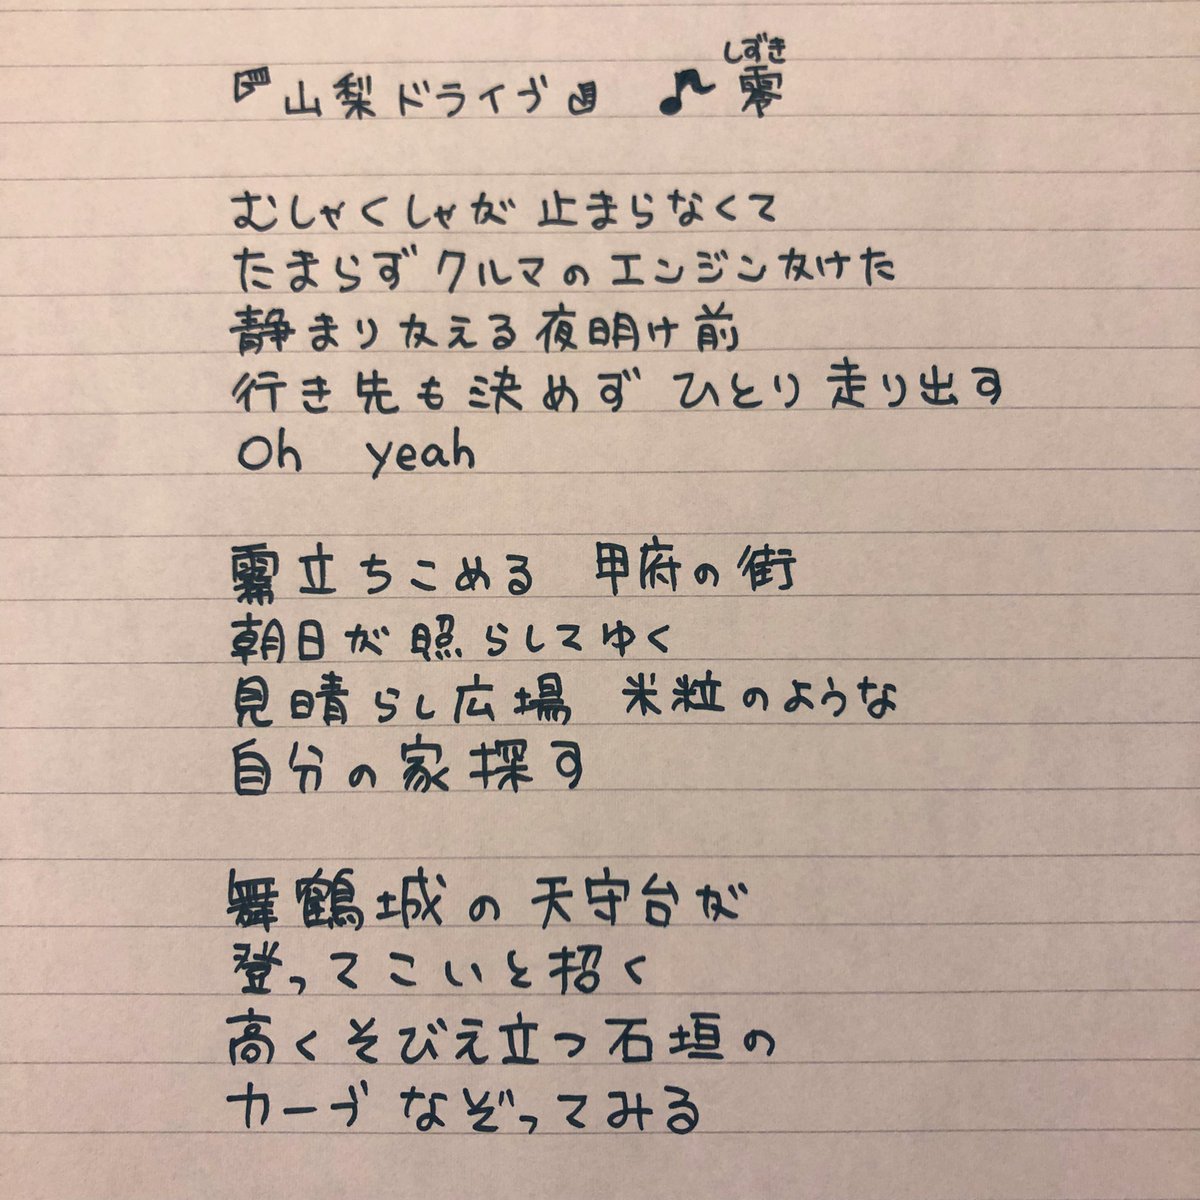 『山梨ドライブ』 ♪ 零
しずき
むしゃくしゃが 止まらなくて
たまらず クルマの エンジンかけた
静まりかえる夜明け前
行き先も決めず ひとり 走り出す
Oh yeah
霧立ちこめる 甲府の街
朝日が照らしてゆく
見晴らし広場 米粒のような
自分の家探す
舞鶴城の天守台が
登ってこいと招く
高くそびえ立つ石垣の
カーブ なぞってみる